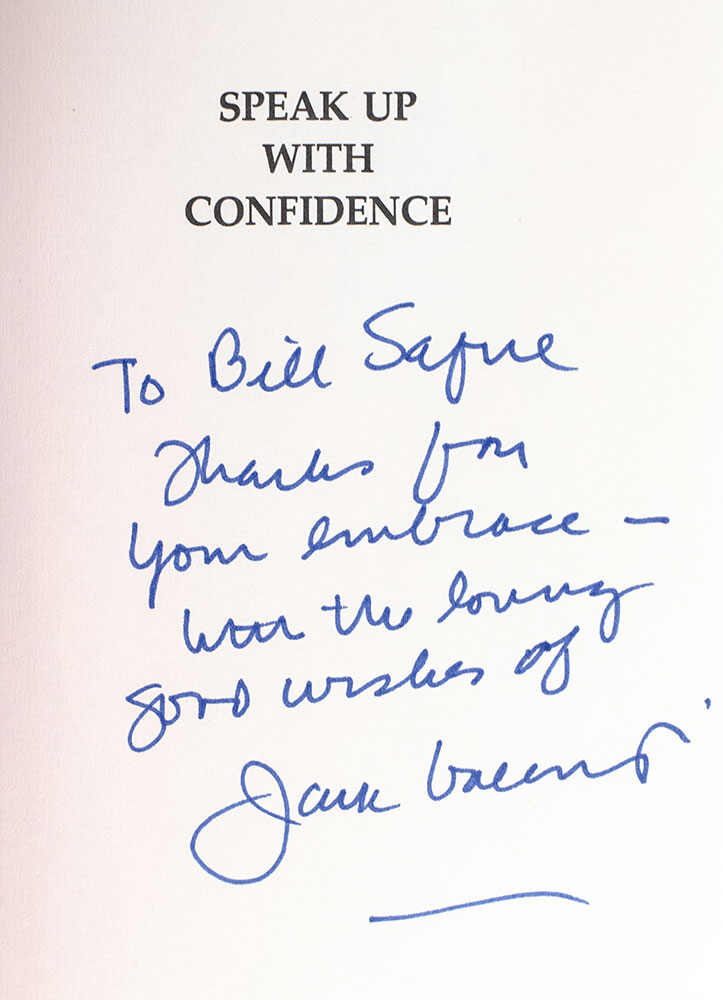 SPEAK UP
WITH
CONFIDENCE
To Bill Safire
Thanks for
your embrace —
with the loving
good wishes of
Jack Valenti